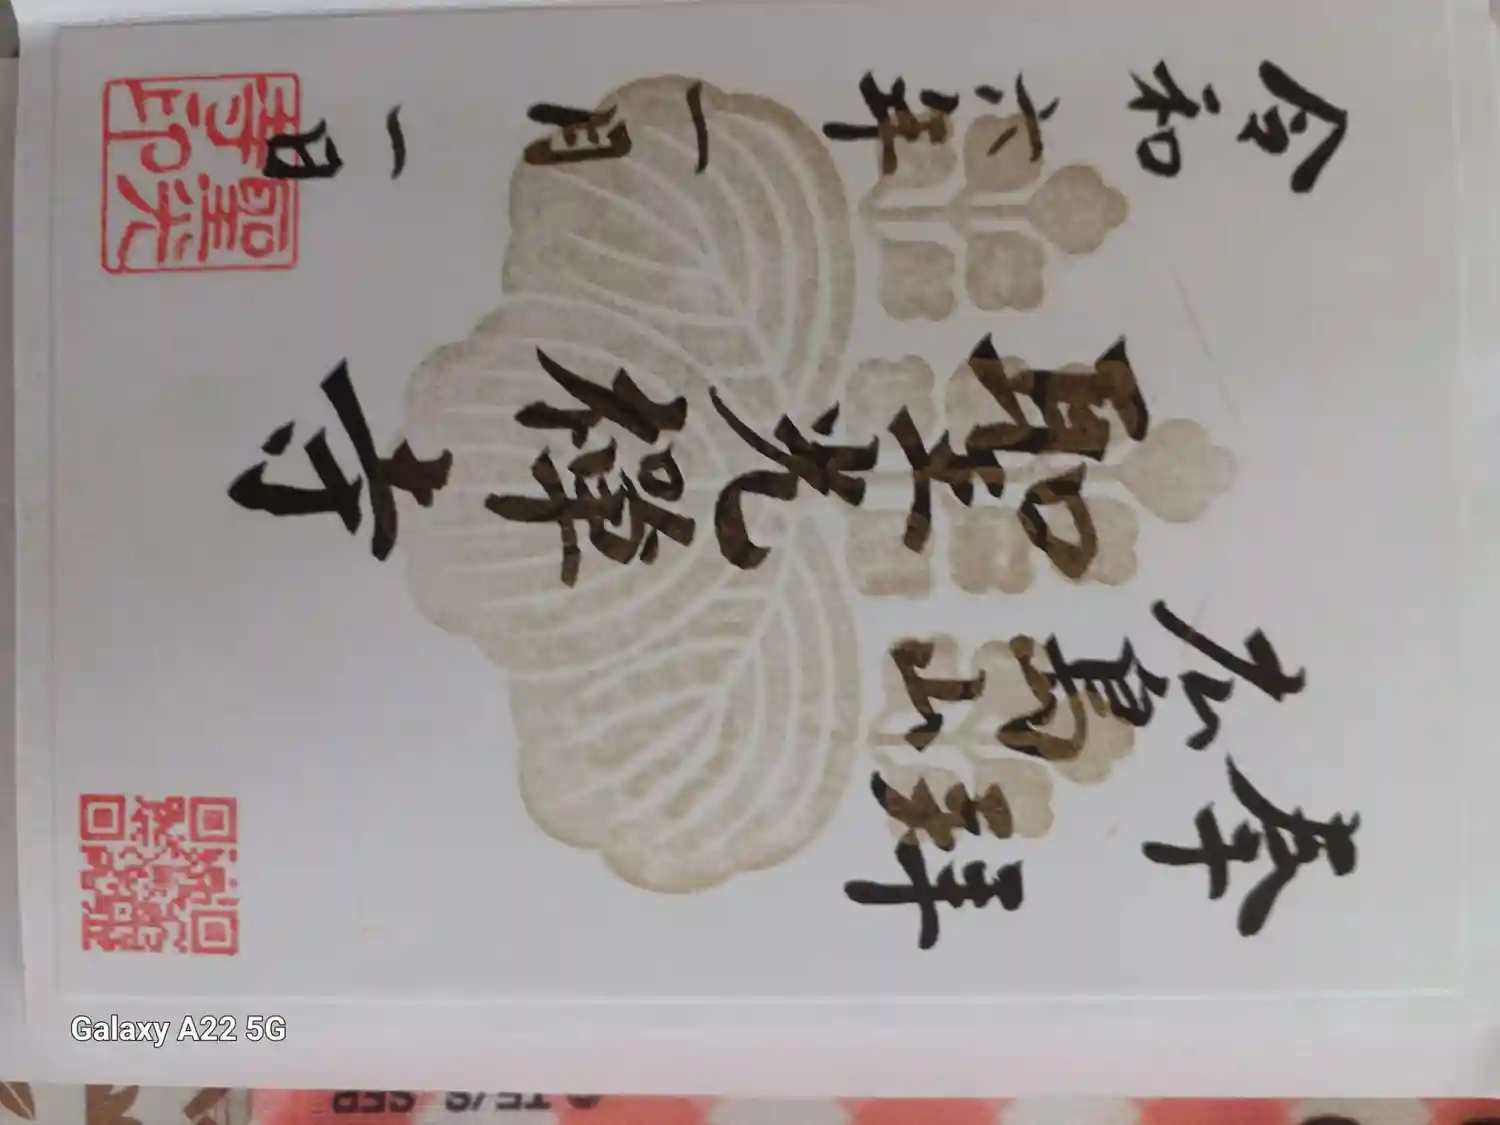 奉拝
聖光禅寺
令和六年一月一日
聖光
寺印
Galaxy A22 5G